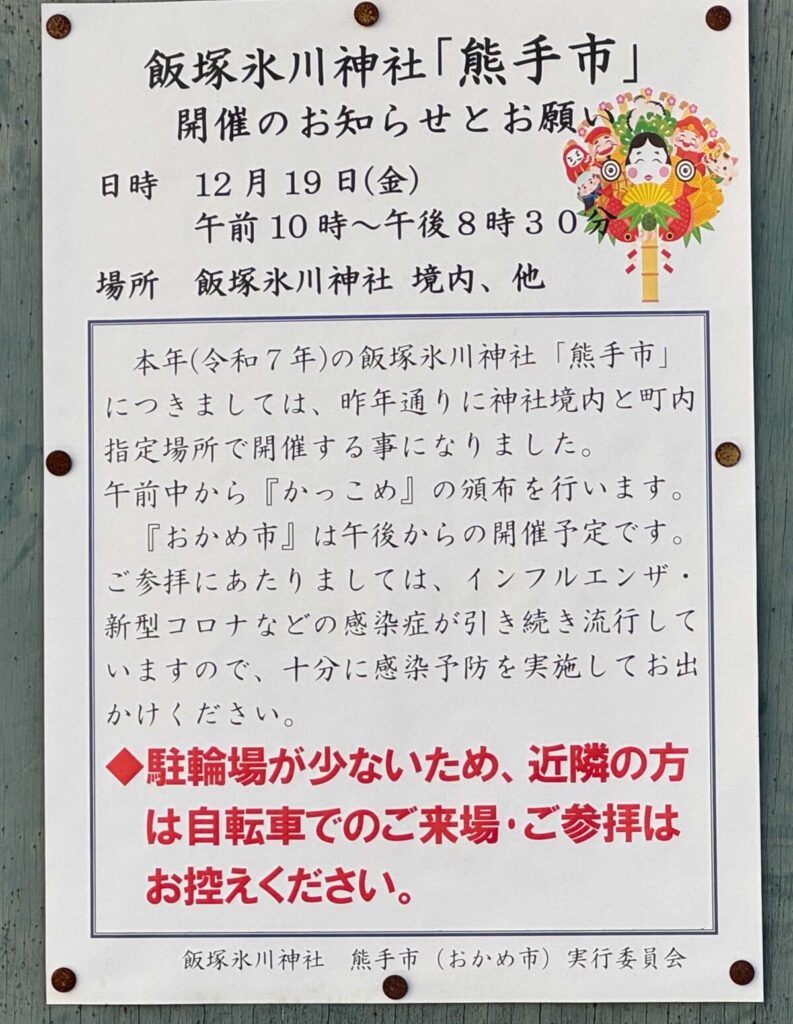 飯塚氷川神社「熊手市」
開催のお知らせとお願い
日時　12月19日(金)
午前10時～午後８時３０分
場所　飯塚氷川神社 境内、他
本年(令和７年)の飯塚氷川神社「熊手市」
につきましては、昨年通りに神社境内と町内
指定場所で開催する事になりました。
午前中から『かっこめ』の頒布を行います。
『おかめ市』は午後からの開催予定です。
ご参拝にあたりましては、インフルエンザ・
新型コロナなどの感染症が引き続き流行して
いますので、十分に感染予防を実施してお出
かけください。
◆駐輪場が少ないため、近隣の方
は自転車でのご来場･ご参拝は
お控えください。
飯塚氷川神社　熊手市（おかめ市）実行委員会